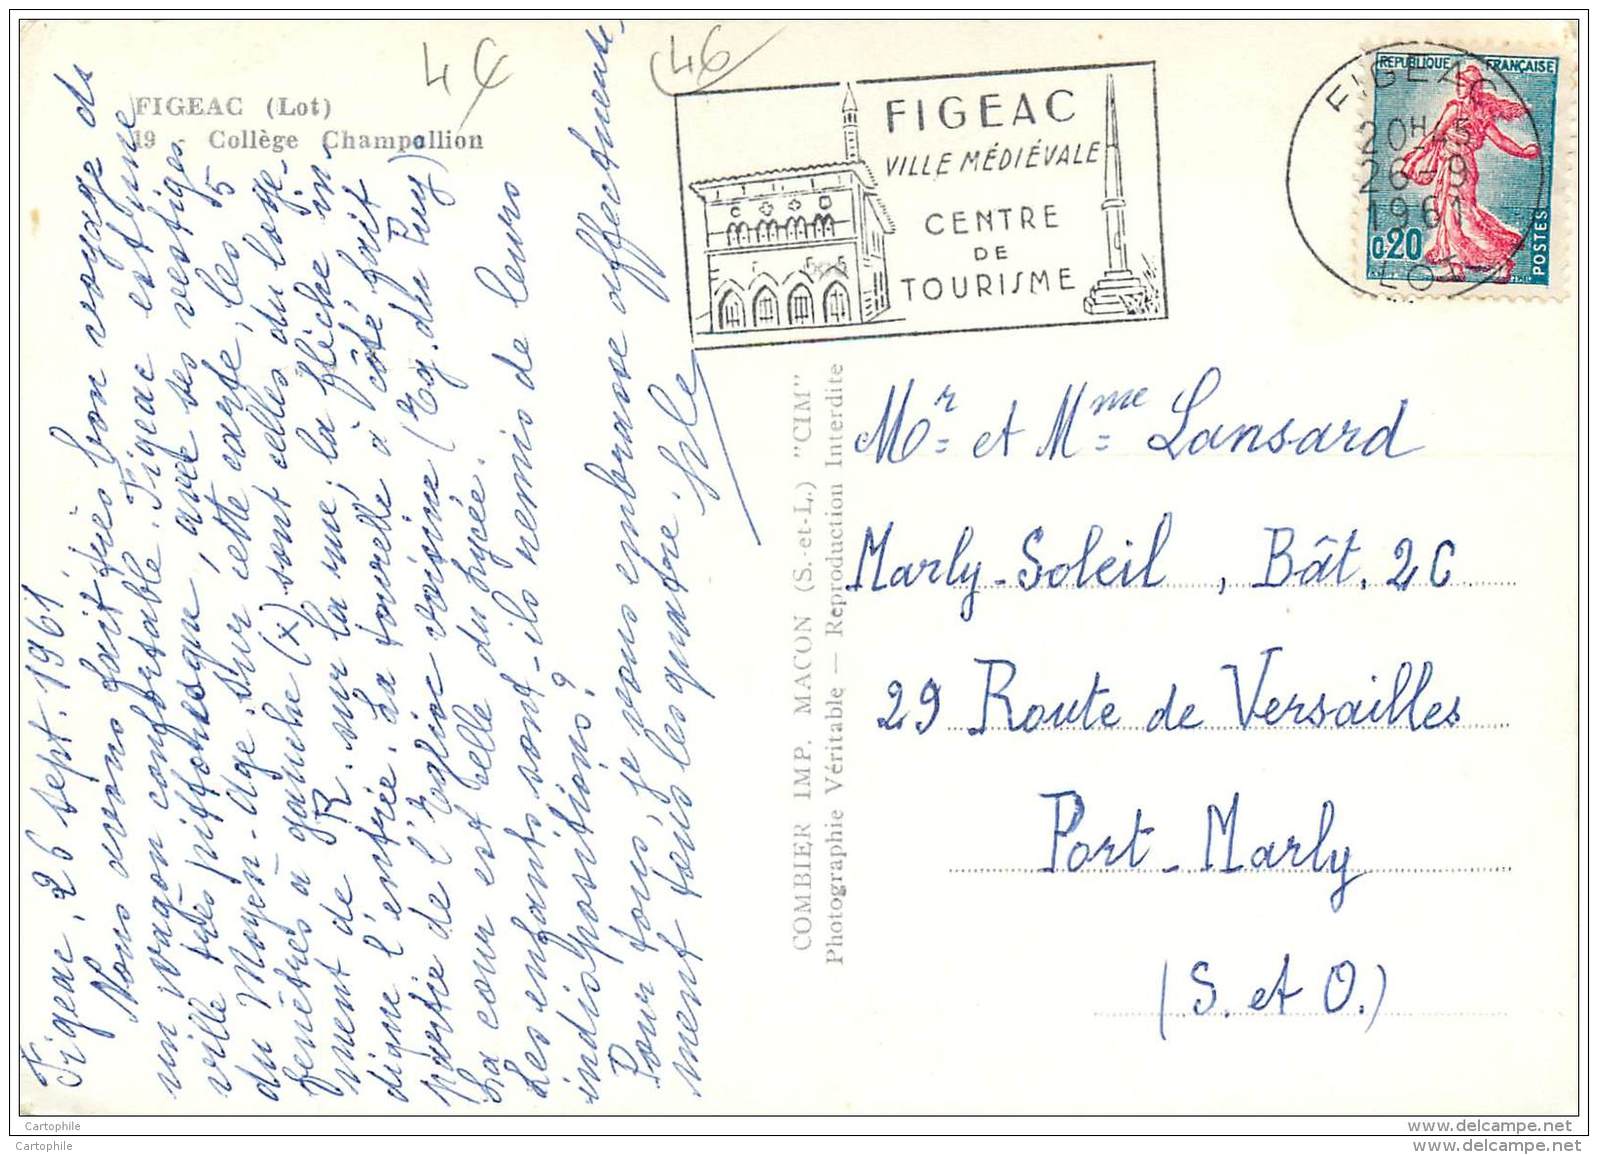 FIGEAC (Lot)
19 - Collège Champollion
46
46
FIGEAC
VILLE MÉDIÉVALE
CENTRE
DE
TOURISME
FIGEAC
20H45
26-9
1961
LOT
REPUBLIQUE FRANÇAISE
0,20
POSTES
Figeac, 26 sept. 1961
Nous avons fait très bon voyage ds
un wagon confortable. Figeac est une
ville très pittoresque, avec ses vestiges
du Moyen-Age. Sur cette carte, les 5
fenêtres à gauche (x) sont celles du loge-
ment de R. sur la rue; la flèche in-
dique l'entrée. La tourelle à côté fait
partie de l'Eglise voisine (Eg. du Puy)
La cour est celle du lycée.
Les enfants sont-ils remis de leurs
indispositions?
Pour tous, je vous embrasse affectueuse-
ment tous les quatre.
COMBIER IMP. MACON (S.-et-L.) "CIM"
Photographie Véritable — Reproduction Interdite
Mr et Mme Lansard
Marly-Soleil, Bât. 2C
29 Route de Versailles
Port-Marly
(S. et O.)
Cartophile
www.delcampe.net
Cartophile
www.delcampe.net